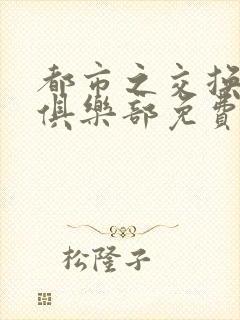 都市之交换
俱樂部免費
松隆子